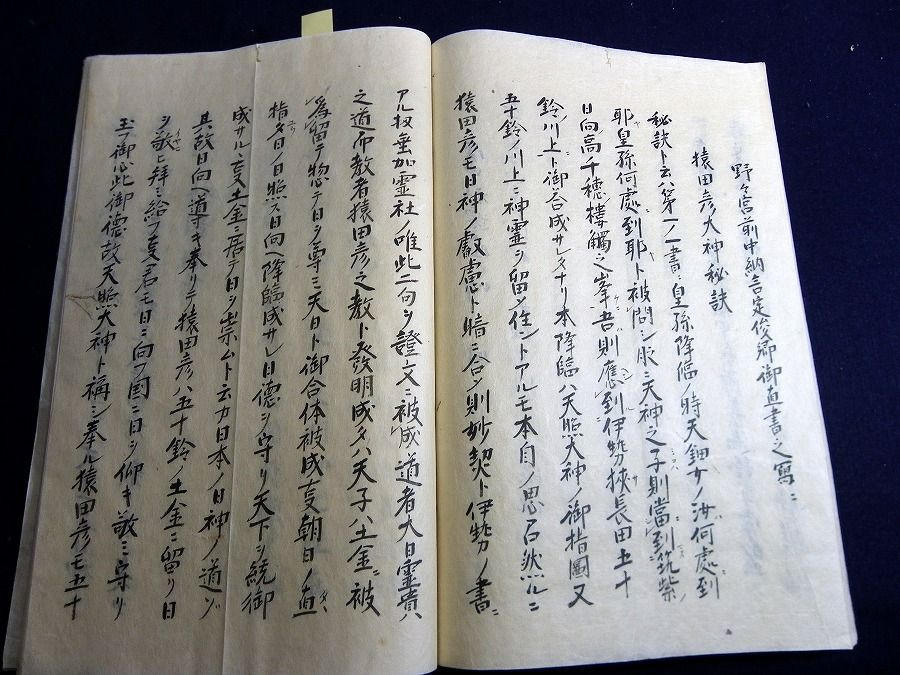 野々宮前中納言定俊卿御直書之寫ニ
猿田彦大神秘訣
秘訣ト云ハ第一ノ一書ニ皇孫降臨ノ時天鈿女ノ汝何處到
耶皇孫何處到耶ト被問シ底ニ天神之子則當到筑紫
日向高千穂槵觸之峯吾則應到伊勢狹長田五十
鈴川上ト御答成サレタナリ本降臨ハ天照大神ノ御指圖又
五十鈴ノ川上ニ神霊ヲ留ノ住ントアルモ本自ノ思召然ルニ
猿田彦モ日神ノ叡慮ト暗ニ合ノ則妙契ト伊勢ノ書ニ
アル扨垂加霊社ノ唯此二句ヲ證文ニ被成道者大日霊貴
之道而教者猿田彦之教ト發明成タハ天子ハ土金ニ被
爲留テ惣テ日ヲ尊ミ天日ト御合体被成〻朝日ノ直
指タ日ノ照ス日向ヘ降臨成サレ日德ヲ守リ天下ヲ統御
成サル〻〻土金ニ居テ日ヲ崇ムト云カ日本ノ日神ノ道ゾ
其故日向ヘ導キ奉リテ猿田彦ハ五十鈴ノ土金ニ留リ日
ヲ敬ヒ拜ミ給フ〻君モ日ニ向フ国ニ日ヲ仰キ敬ミ守リ
玉フ御心此御德故天照大神ト稱シ奉ル猿田彦モ五十